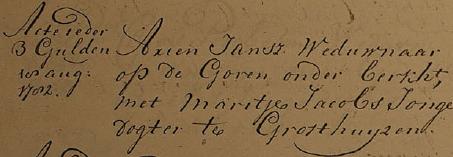 Acte ieder
3 Gulden
10 aug:
1782.
Arien Jansz. Weduwnaar
op de Goren onder berkht,
met Maritje Jacobs Jonge
dogter te Grosthuyzen.